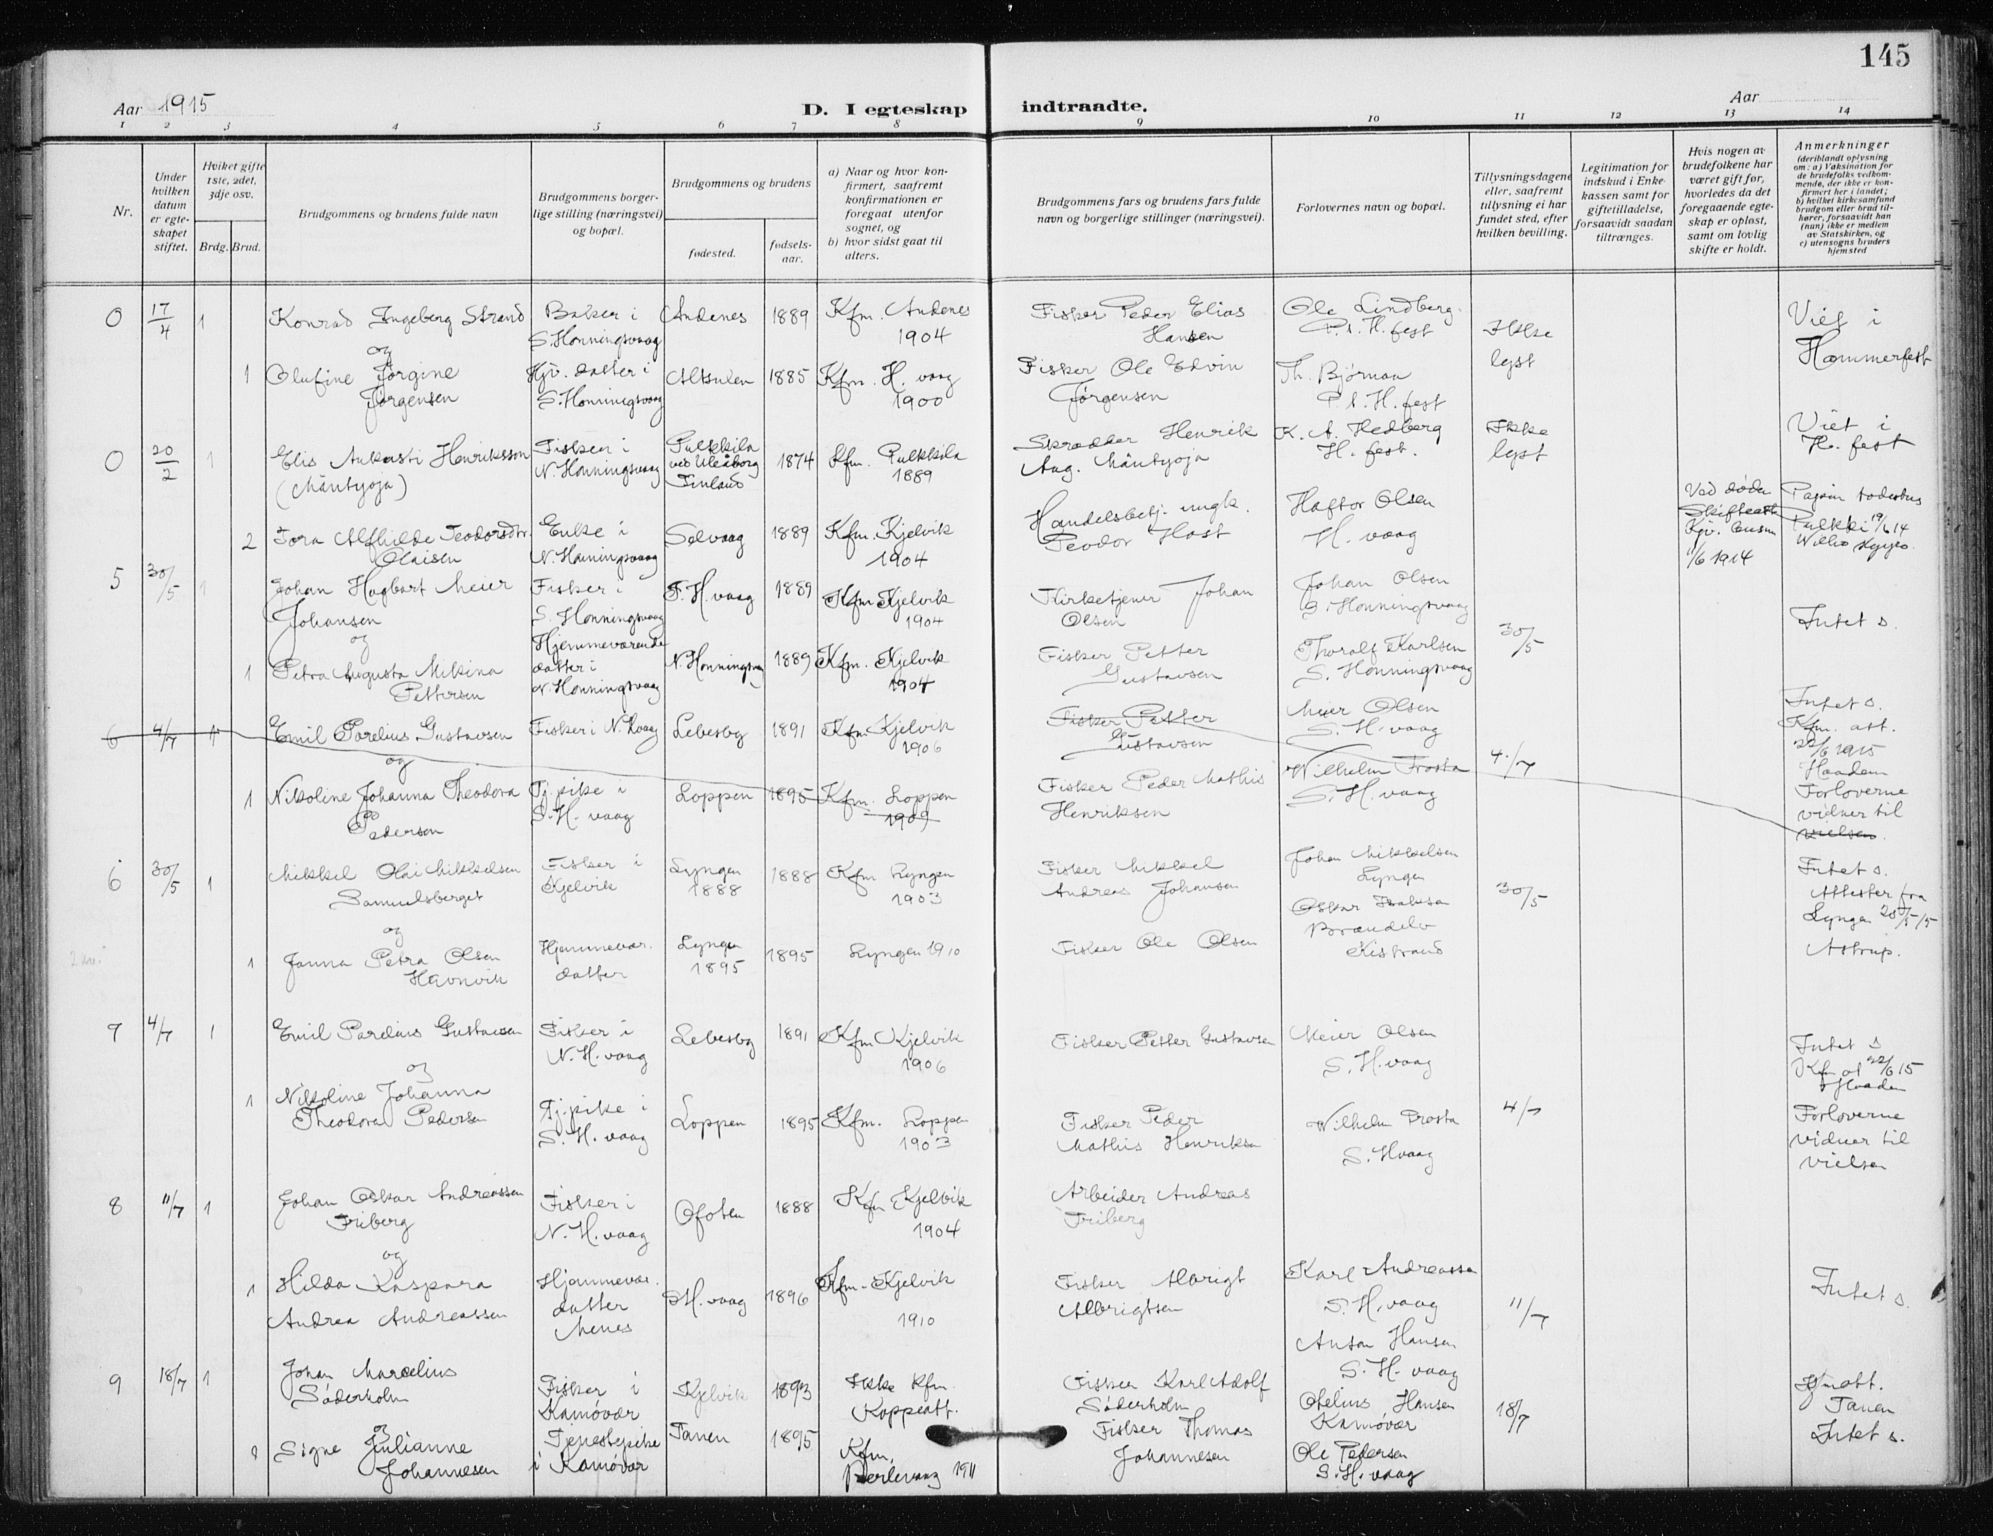 145
Aar 1915
D. I egteskap indtraadte.
Aar
1 2 3 4 5 6 7 8 9 10 11 12 13 14
Nr.
Under hvilken datum er egte-skapet stiftet.
Hvilket gifte 1ste, 2det, 3dje osv.
Brdg. Brud.
Brudgommens og brudens fulde navn
Brudgommens borger-lige stilling (næringsvei) og bopæl.
Brudgommens og brudens
fødested.
fødsels-aar.
a) Naar og hvor kon-firmert, saafremt konfirmationen er foregaat utenfor sognet, og
b) hvor sidst gaat til alters.
Brudgommens fars og brudens fars fulde navn og borgerlige stillinger (næringsvei).
Forlovernes navn og bopæl.
Tillysningsdagene eller, saafremt tillysning ei har fundet sted, efter hvilken bevilling.
Legitimation for indskud i Enke-kassen samt for giftetilladelse, forsaavidt saadan tiltrænges.
Hvis nogen av brudefolkene har været gift før, hvorledes da det foregaaende egte-skap er opløst, samt om lovlig skifte er holdt.
Anmerkninger
(deriblandt oplysning om: a) Vaksination for de brudefolks vedkom-mende, der ikke er kon-firmert her i landet; b) hvilket kirkesamfund brudgom eller brud til-hører, forsaavidt han (hun) ikke er medlem av Statskirken, og c) utensogns bruders hjemsted
0 17/4 1 Konrad Ingeberg Strand Baker i S. Honningsvaag Andenes 1889 Kfm. Andenes 1904 Fisker Peder Elias Hansen Ole Lindberg H. fest Ikke lyst Viet i Hammerfest
og
1 Olufine Jørgine Jørgensen Hjv. datter i S. Honningsvaag 1885 Kfm. H. vaag 1900 Fisker Ole Edvin Jørgensen Th. Bjørnaa H. fest
0 20/2 1 Elis Aukusti Henriksson (Mäntyoja) Fisker i N. Honningsvaag Pulkkila ved Uleåborg Finland 1874 Kfm. Pulkkila 1889 Skrædder Henrik Aug. Mäntyoja K. A. Hedberg H. fest. Ikke lyst Viet i H. fest
2 Tora Alfhilde Teodorsdtr. Olaisen Enke i N. Honningsvaag Selvaag 1889 Kfm. Kjelvik 1904 Handelsbetj. ungk. Peodor Hast Haftor Olsen H. vaag Ved døden 1/6 1914 Pulkki 19/6 14
5 30/5 1 Johan Hagbart Meier Johansen Fisker i S. Honningsvaag F. H. vaag 1889 Kfm. Kjelvik 1904 Kirketjener Johan Olsen Johan Olsen S. Honningsvaag 30/5 Intet s.
og
1 Petra Augusta Mikina Pettersen Hjemmeværende datter i N. Honningsvaag N. Honningsvaag 1889 Kfm. Kjelvik 1904 Fisker Petter Gustavsen Thoralf Karlsen S. Honningsvaag
6 4/7 1 Emil Parelius Gustavsen Fisker i N. Hvaag Lebesby 1891 Kfm Kjelvik 1906 Fisker Petter Gustavsen Meier Olsen S. H. vaag 4./7 Intet s. Kfm. att. 22/6 1915 Haadem Forloverne vidner til vielsen.
og
1 Nikoline Johanna Theodora Pedersen Tj. pike i S. H. vaag Loppen 1895 Kfm. Loppen 1909 Fisker Peder Mathis Henriksen Wilhelm Prosta S. H. vaag
6 30/5 1 Mikkel Olai Mikkelsen Samuelsberget Fisker i Kjelvik Lyngen 1888 1888 Kfm Lyngen 1903 Fisker Mikkel Andreas Johansen Johan Mikkelsen Lyngen 30/5 Intet s. Attester fra Lyngen Astrup.
og
1 Janna Petra Olsen Havnvik Hjemmevær. datter Lyngen 1895 1895 Lyngen 1910 Fisker Ole Olsen Kistrand
7 4/7 1 Emil Parelius Gustavsen Fisker i N. H. vaag Lebesby 1891 Kfm Kjelvik 1906 Fisker Petter Gustavsen Meier Olsen S. H. vaag Intet s Kfm at 22/6 15 Haadem
og
1 Nikoline Johanna Theodora Pedersen Tj. pike i S. H. vaag Loppen 1895 Kfm. Loppen 1903 Fisker Peder Mathis Henriksen Wilhelm Prosta S. Hvaag 4/7 Forloverne vidner til vielsen
8 11/7 1 Johan Oskar Andreassen Friberg Fisker i N. H. vaag Ofoten 1888 Kfm Kjelvik 1904 Arbeider Andreas Friberg
og
1 Hilda Kaspara Andrea Andreassen Hjemmevær. datter Menes H. vaag 1896 Kfm. Kjelvik 1910 Fisker Albrigt Albrigtsen Karl Andreassen S. H. vaag Anton Hansen S. H. vaag 11/7 Intet s.
9 18/7 1 Johan Marcelius Søderholm Fisker i Kamøvær Kjelvik 1893 Ikke Kfm. Koppeatt. Fisker Karl Adolf Søderholm Otelius Hansen Kamøvær 18/7 Kfmatt. Tanen Intet s.
og
Signe Julianne Johannesen Tjenestepike i Kamøvær Tanen 1895 Kfm. Berlevaag 1911 Fisker Thomas Johannesen Ole Pedersen S. H. vaag